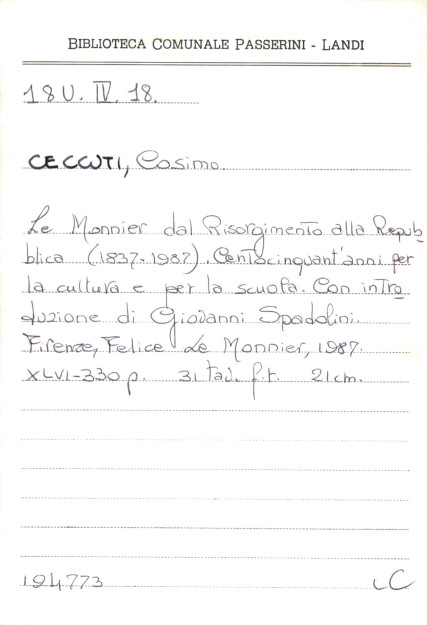 BIBLIOTECA COMUNALE PASSERINI - LANDI
18 U. IV. 18.
CECCUTI, Cosimo.
Le Monnier dal Risorgimento alla Repub
blica (1837-1987). Centocinquant'anni per
la cultura e per la scuola. Con intro
duzione di Giovanni Spadolini.
Firenze, Felice Le Monnier, 1987.
XLVI-330 p. 31 tav. f.t. 21 cm.
194773 LC